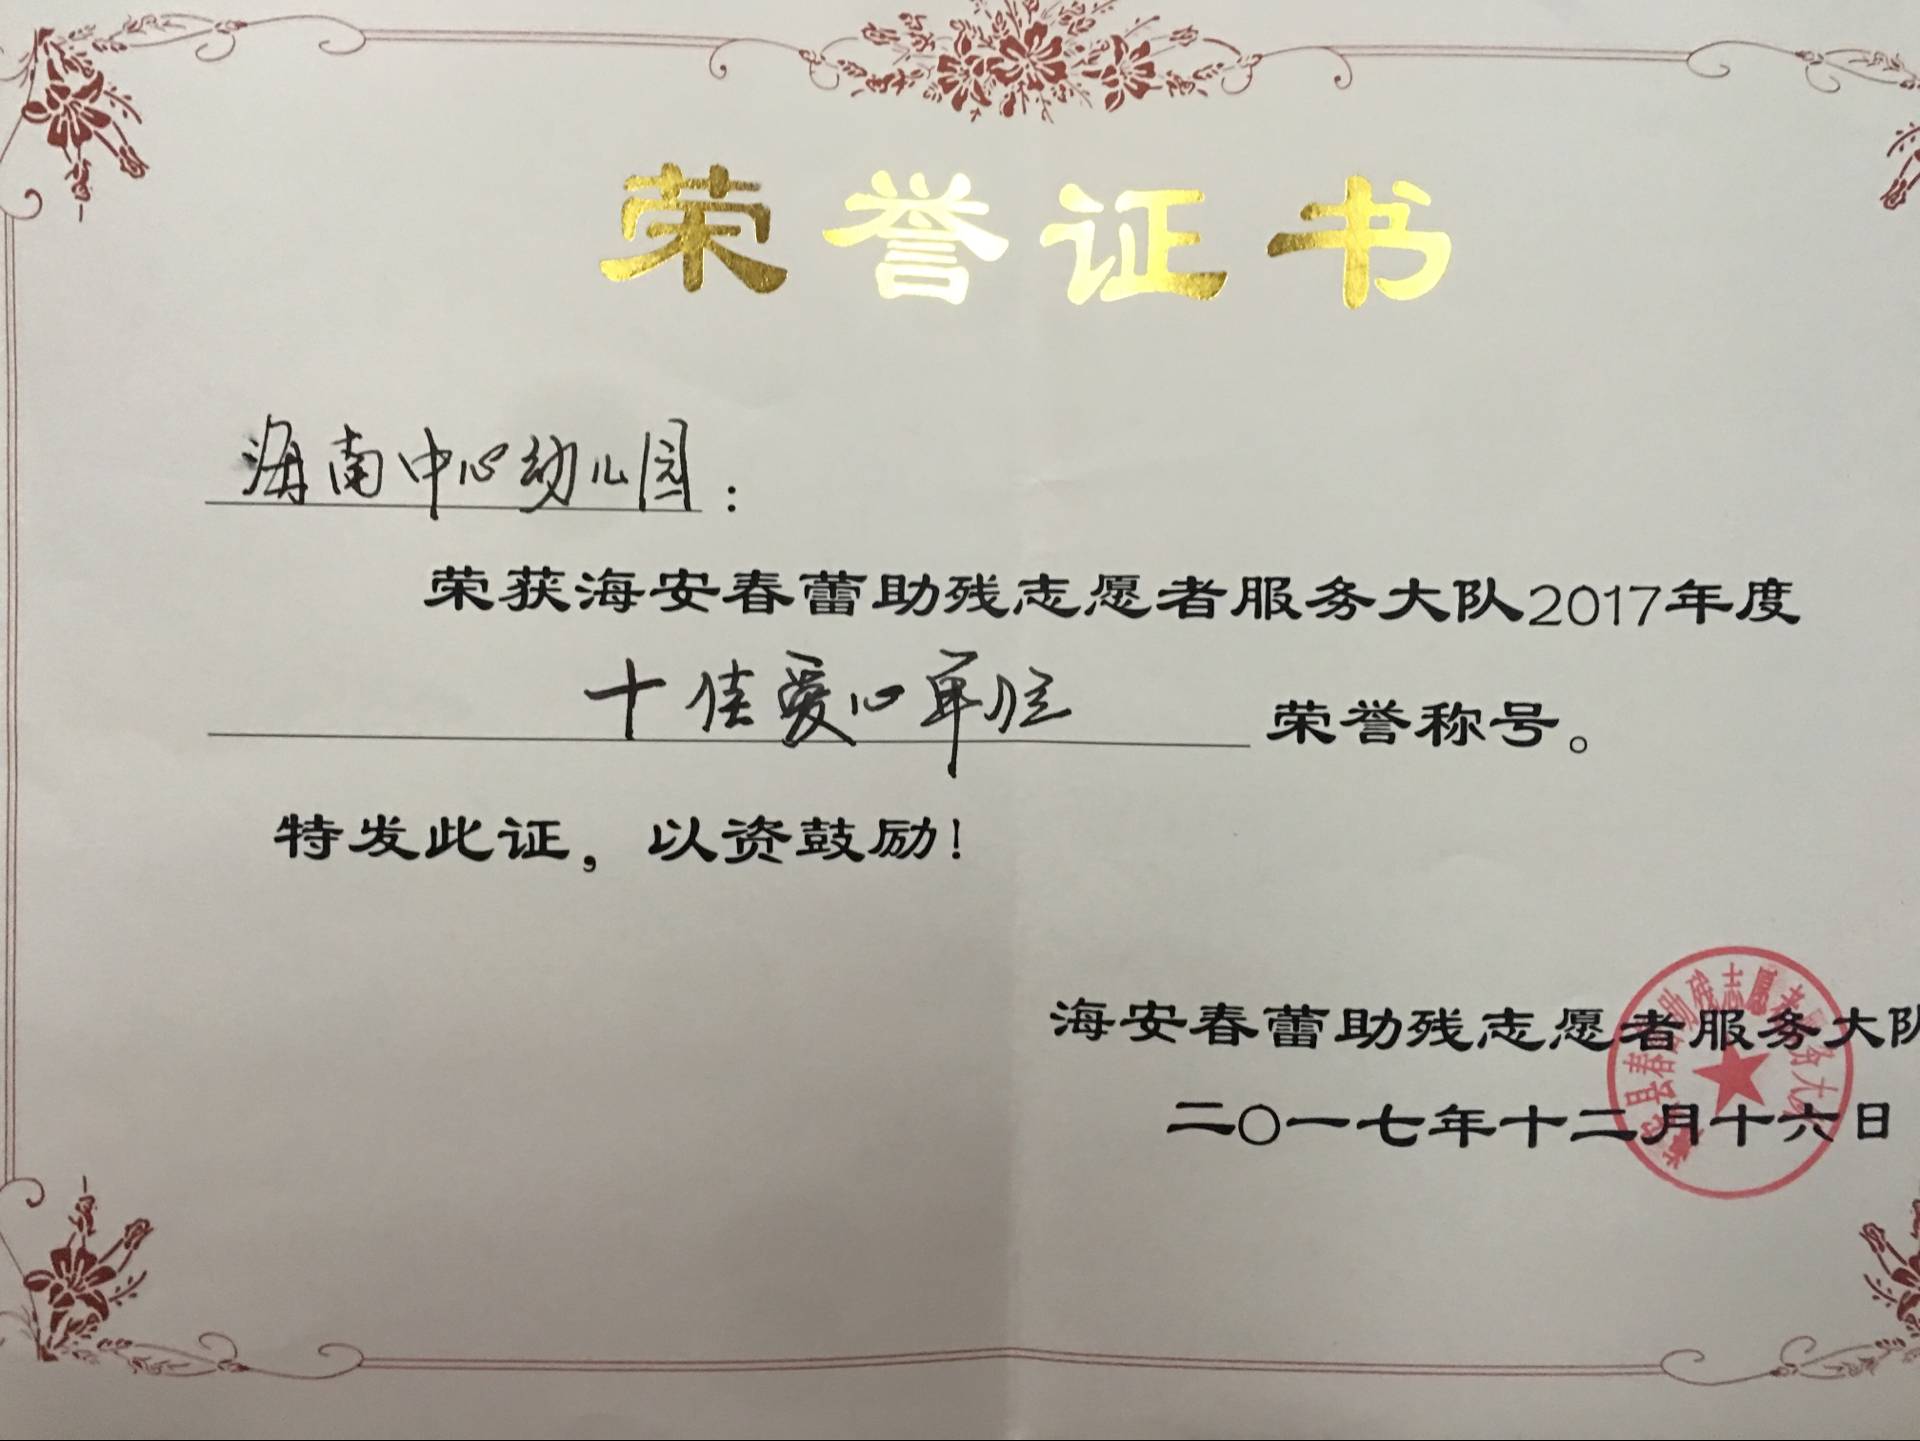 荣誉证书
海南中心幼儿园：
荣获海安春蕾助残志愿者服务大队2017年度
十佳爱心单位荣誉称号。
特发此证，以资鼓励！
海安春蕾助残志愿者服务大队
二〇一七年十二月十六日